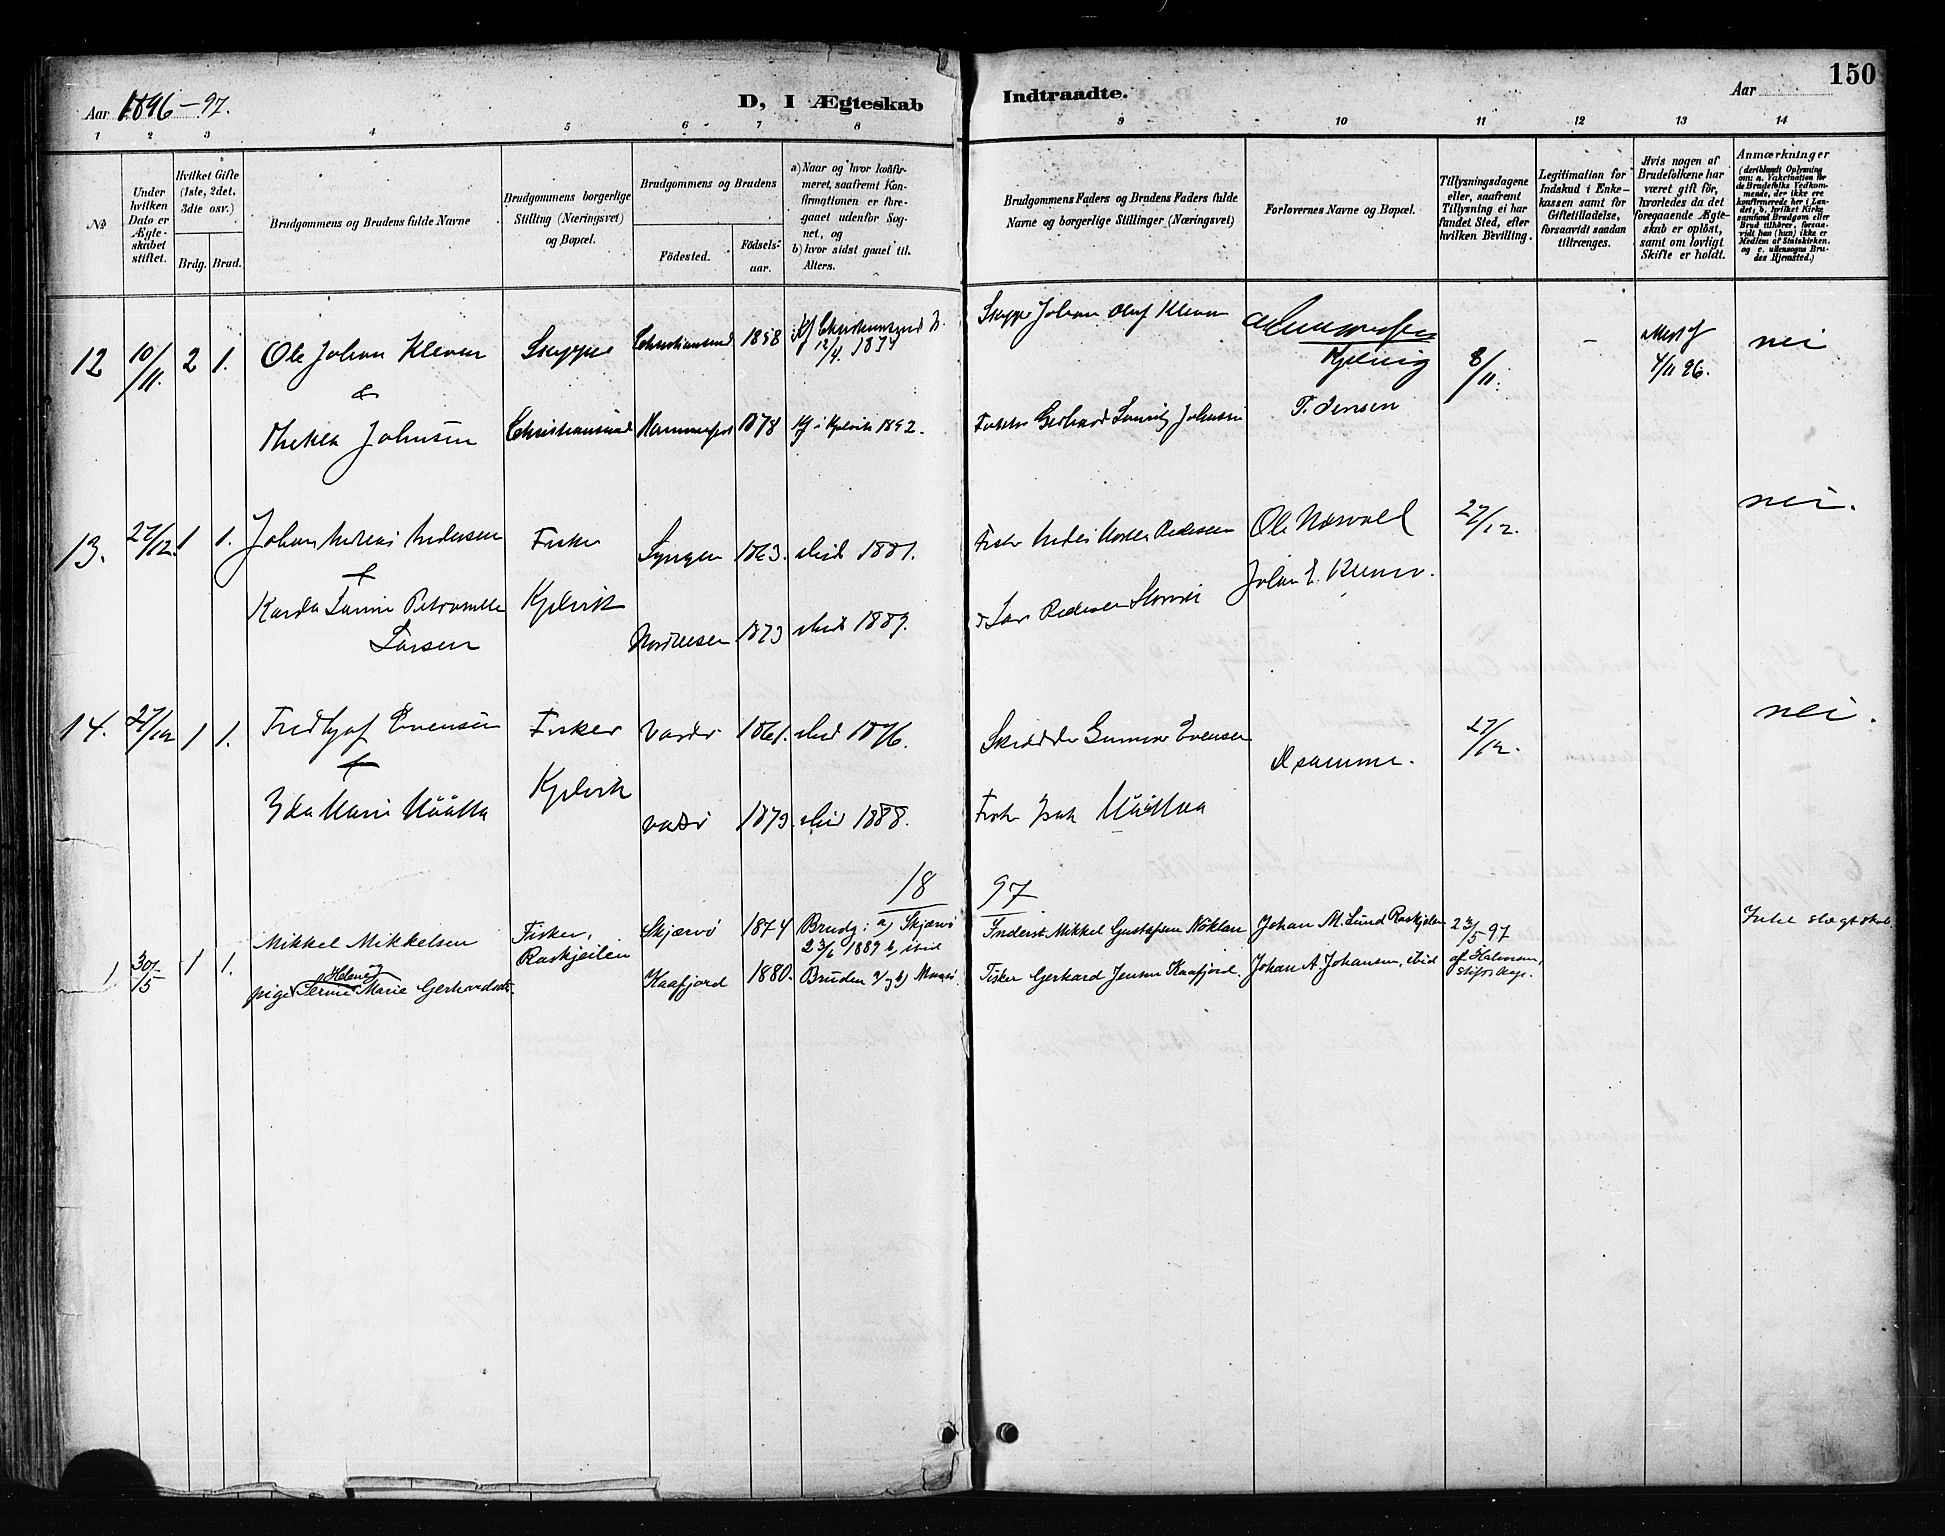 150
Aar 1896-97.
D, I Ægteskab
Indtraadte.
Aar
1 2 3 4 5 6 7 8 9 10 11 12 13 14
No
Under hvilken Dato er Ægteskabet stiftet.
Hvilket Gifte (1ste, 2det, 3die osv.)
Brdg. Brud.
Brudgommens og Brudens fulde Navne
Brudgommens borgerlige Stilling (Næringsvei) og Bopæl.
Brudgommens og Brudens
Födested.
Födselsaar.
a) Naar og hvor konfirmeret, saafremt Konfirmationen er foregaaet udenfor Sognet, og
b) hvor sidst gaaet til Alters.
Brudgommens Faders og Brudens Faders fulde Navne og borgerlige Stillinger (Næringsvei)
Forlovernes Navne og Bopæl.
Tillysningsdagene eller, saafremt Tillysning ei har fundet Sted, efter hvilken Bevilling.
Legitimation for Indskud i Enkekassen samt for Giftetilladelse, forsaavidt saadan tiltrænges.
Hvis nogen af Brudefolkene har været gift før, hvorledes da det foregaaende Ægteskab er oplöst, samt om lovligt Skifte er holdt.
Anmærkninger (deriblandt Oplysning om: a. Vakcination for de Brudefolks Vedkommende, der ikke ere konfirmerede her i Landet; b. hvilket Kirkesamfund Brudgom eller Brud tilhører, forsaavidt han (hun) ikke er Medlem af Statskirken, og c. udensogns Brudes Hjemsted.)
12 10/11 2 1. Ole Johan Kleven Skipper Christiansund 1858 Kf Christiansund 12/4. 1874 Johan Oluf Kleven 8/11. - Attest 4/11 96. nei
&
Thekla Johnsen Christiansund Hammerfest 1878 Kf i Kjelvik 1892. Fisker Gerhard Johnsen T. Jensen
13. 27/12 1 1. Johan Andreas Andersen Fisker Lyngen 1863. ibid 1881. Fisker Anders Pedersen Ole Norvall 27/12. nei.
+
Larsen Kjelvik 1873 ibid 1889. Lars Pedersen Johan E. Klemo.
14. 27/12 1 1. Fridthjof Evensen Fisker Vardø 1861. ibid 1876. Gunnar Evensen D samme. 27/12. nei.
+
Ida Marie Määtta Kjelvik Vadsø 1873. ibid 1888. Fisker Isak Määttaa
18 97
1 30/5 1 1. Mikkel Mikkelsen Fisker, Raskjeilen Skjærvø 1874 Brudg: a) Skjærvø 23/6 1889 b, ibid Inderst Mikkel Gustafsen Nöklan Johan M. Lund Raskjeilen 23/5 97 Intet slægtskab
pige Serine Marie Gerhardsdtr. Kaafjord 1880. Bruden a) og b) Maasø. Fisker Gerhard Jensen Kaafjord. Johan A. Johansen, ibid